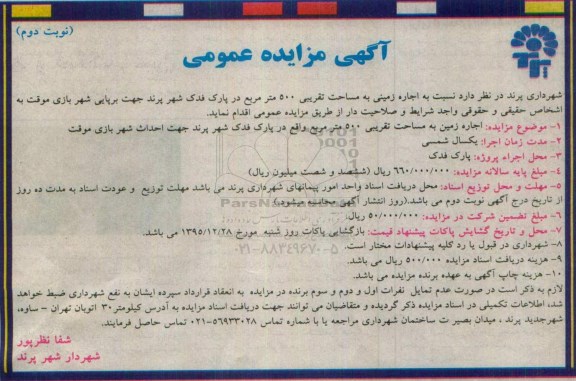 (نوبت دوم)
آگهی مزایده عمومی
پرند
شهرداری پرند در نظر دارد نسبت به اجاره زمینی به مساحت تقریبی ۵۰۰ متر مربع در پارک فدک شهر پرند جهت برپایی شهر بازی موقت به
اشخاص حقیقی و حقوقی واجد شرایط و صلاحیت دار از طریق مزایده عمومی اقدام نماید.
۱- موضوع مزایده: اجاره زمین به مساحت تقریبی ۵۰۰ متر مربع واقع در پارک فدک شهر پرند جهت احداث شهر بازی موقت
۲- مدت زمان اجرا: یکسال شمسی
۳- محل اجراء پروژه: پارک فدک
۴- مبلغ پایه سالانه مزایده: ۶۶۰/۰۰۰/۰۰۰ ریال (ششصد و شصت میلیون ریال)
۵- مهلت و محل توزیع اسناد: محل دریافت اسناد واحد امور پیمانهای شهرداری پرند می باشد مهلت توزیع و عودت اسناد به مدت ده روز
از تاریخ درج آگهی نوبت دوم می باشد.(روز انتشار آگهی محاسبه میشود)
۶- مبلغ تضمین شرکت در مزایده: ۵۰/۰۰۰/۰۰۰ ریال.
۷- محل و تاریخ گشایش پاکات پیشنهاد قیمت: بازگشایی پاکات روز شنبه مورخ ۱۳۹۵/۱۲/۲۸ می باشد.
۸- شهرداری در قبول یا رد کلیه پیشنهادات مختار است.
۹- هزینه دریافت اسناد مزایده ۵۰۰/۰۰۰ ریال می باشد.
۱۰- هزینه چاپ آگهی به عهده برنده مزایده می باشد.
لازم به ذکر است در صورت عدم تمایل نفرات اول و دوم و سوم برنده در مزایده به انعقاد قرارداد سپرده ایشان به نفع شهرداری ضبط خواهد
شد، اطلاعات تکمیلی در اسناد مزایده ذکر گردیده و متقاضیان می توانند جهت دریافت اسناد مزایده به آدرس کیلومتر ۳۰ اتوبان تهران – ساوه،
شهرجدید پرند ، میدان بصیر ت ساختمان شهرداری مراجعه یا با شماره تماس ۵۶۹۳۳۰۲۸-۰۲۱ تماس حاصل فرمایند.
شفا نظرپور
شهردار شهر پرند
۰۲۱-۸۸۳۴۹۶۷۰-۵